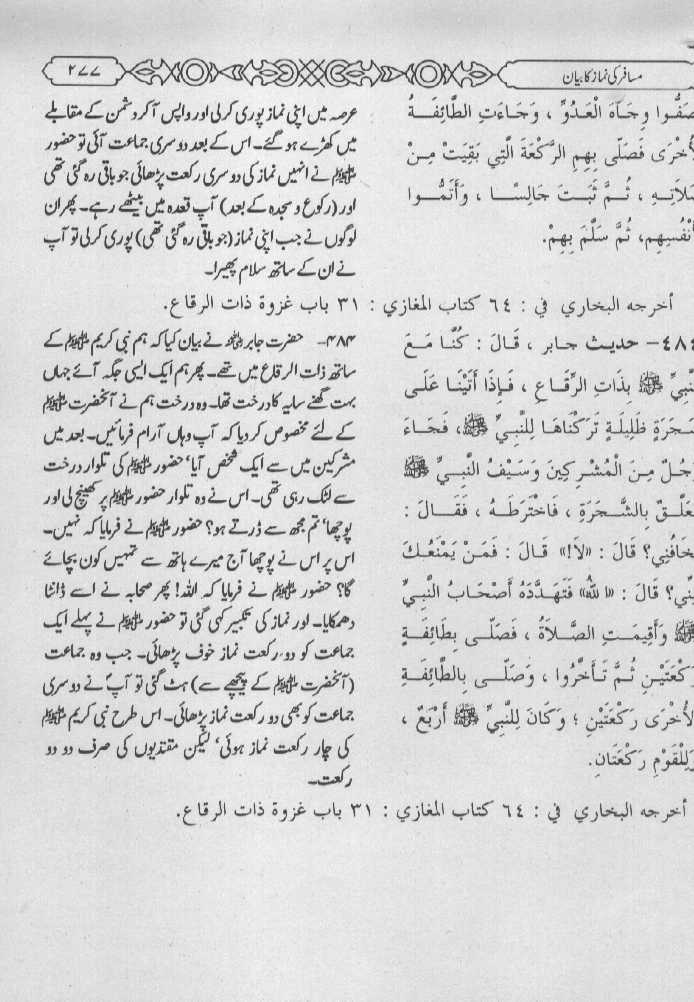 مسافر کی نماز کا بیان
۲۷۷
صَفُّوا وِجَاهَ الْعَدُوِّ ، وَجَاءَتِ الطَّائِفَةُ
الأُخْرَى فَصَلَّى بِهِمِ الرَّكْعَةَ الَّتِي بَقِيَتْ مِنْ
صَلاَتِهِ ، ثُمَّ ثَبَتَ جَالِسًا ، وَأَتَمُّوا
أَنْفُسِهِم، ثُمَّ سَلَّمَ بِهِمْ.
عرصہ میں اپنی نماز پوری کرلی اور واپس آکر دشمن کے مقابلے
میں کھڑے ہو گئے۔ اس کے بعد دوسری جماعت آئی تو حضور
ﷺ نے انہیں نماز کی دوسری رکعت پڑھائی جو باقی رہ گئی تھی
اور (رکوع و سجدہ کے بعد) آپ قعدہ میں بیٹھے رہے۔ پھر ان
لوگوں نے جب اپنی نماز (جو باقی رہ گئی تھی) پوری کرلی تو آپ
نے ان کے ساتھ سلام پھیرا۔
أخرجه البخاري في : ٦٤ كتاب المغازي : ٣١ باب غزوة ذات الرقاع.
٤٨٤– حديث جابر ، قَالَ : كُنَّا مَعَ
النَّبِيِّ ﷺ بِذَاتِ الرِّقَاعِ ، فَإِذَا أَتَيْنَا عَلَى
شَجَرَةٍ ظَلِيلَةٍ تَرَكْنَاهَا لِلنَّبِيِّ ﷺ، فَجَاءَ
رَجُلٌ مِنَ الْمُشْرِكِينَ وَسَيْفُ النَّبِيِّ ﷺ
مُعَلَّقٌ بِالشَّجَرَةِ ، فَاخْتَرَطَهُ ، فَقَالَ :
تَخَافُنِي؟ قَالَ : «لاَ!» قَالَ : فَمَنْ يَمْنَعُكَ
مِنِّي؟ قَالَ : «اللهُ» فَتَهَدَّدَهُ أَصْحَابُ النَّبِيِّ
ﷺ وَأُقِيمَتِ الصَّلاَةُ ، فَصَلَّى بِطَائِفَةٍ
رَكْعَتَيْنِ ثُمَّ تَأَخَّرُوا ، وَصَلَّى بِالطَّائِفَةِ
الأُخْرَى رَكْعَتَيْنِ ؛ وَكَانَ لِلنَّبِيِّ ﷺ أَرْبَعٌ ،
وَلِلْقَوْمِ رَكْعَتَانِ.
۴۸۴– حضرت جابرؓ نے بیان کیا کہ ہم نبی کریم ﷺ کے
ساتھ ذات الرقاع میں تھے۔ پھر ہم ایک ایسی جگہ آئے جہاں
بہت گھنے سایہ کا درخت تھا۔ وہ درخت ہم نے آنحضرت ﷺ
کے لئے مخصوص کر دیا کہ آپ وہاں آرام فرمائیں۔ بعد میں
مشرکین میں سے ایک شخص آیا' حضور ﷺ کی تلوار درخت
سے لٹک رہی تھی۔ اس نے وہ تلوار حضور ﷺ پر کھینچ لی اور
پوچھا' تم مجھ سے ڈرتے ہو؟ حضور ﷺ نے فرمایا کہ نہیں۔
اس پر اس نے پوچھا آج میرے ہاتھ سے تمہیں کون بچائے
گا؟ حضور ﷺ نے فرمایا کہ اللہ! پھر صحابہ نے اسے ڈانٹا
دھمکایا۔ اور نماز کی تکبیر کہی گئی تو حضور ﷺ نے پہلے ایک
جماعت کو دو رکعت نماز خوف پڑھائی۔ جب وہ جماعت
(آنحضرت ﷺ کے پیچھے سے) ہٹ گئی تو آپؐ نے دوسری
جماعت کو بھی دو رکعت نماز پڑھائی۔ اس طرح نبی کریم ﷺ
کی چار رکعت نماز ہوئی' لیکن مقتدیوں کی صرف دو دو
رکعت۔
أخرجه البخاري في : ٦٤ كتاب المغازي : ٣١ باب غزوة ذات الرقاع.